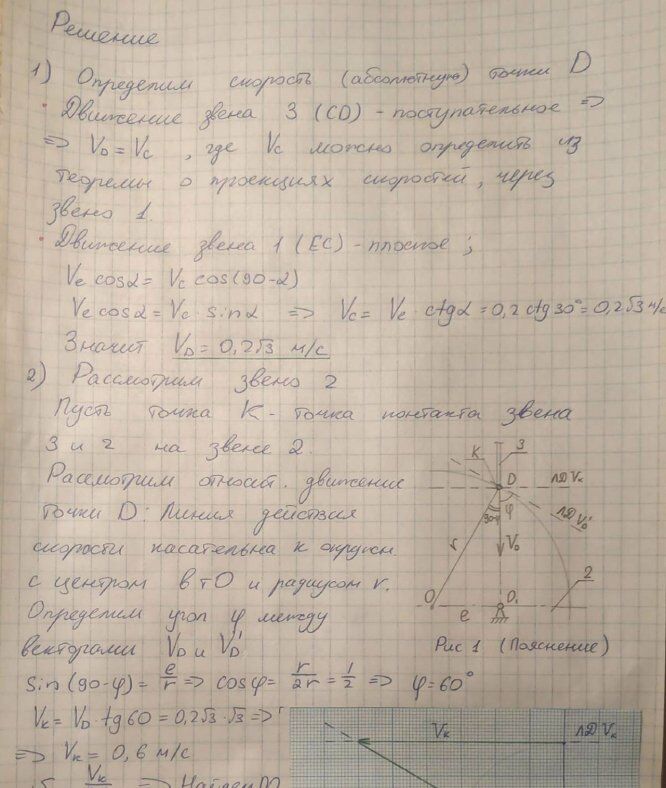 Решение
1) Определим скорость (абсолютную) точки D
Движение звена 3 (CD) - поступательное =>
=> V_D = V_C , где V_C можно определить из
теоремы о проекциях скоростей, через
звено 1.
Движение звена 1 (EC) - плоское ;
V_e cosα = V_c cos(90-α)
V_e cosα = V_c · sinα => V_c = V_e · ctgα = 0,2 ctg30° = 0,2√3 м/с
Значит V_D = 0,2√3 м/с
2) Рассмотрим звено 2
Пусть точка K - точка контакта звена
3 и 2 на звене 2.
Рассмотрим относит. движение
точки D: Линия действия
скорости касательна к окружн
с центром в т O и радиусом r.
Определим угол φ между
векторами V_D и V_D'
sin(90-φ) = e/r => cosφ = r/2r = 1/2 => φ = 60°
V_K = V_D · tg60 = 0,2√3 · √3 =>
=> V_K = 0,6 м/с
V_K => Найдем
K
3
D
ЛД V_K
30°
φ
ЛД V_D'
r
V_D
2
O
D₁
e
Рис 1 (Пояснение)
V_K
ЛД V_K